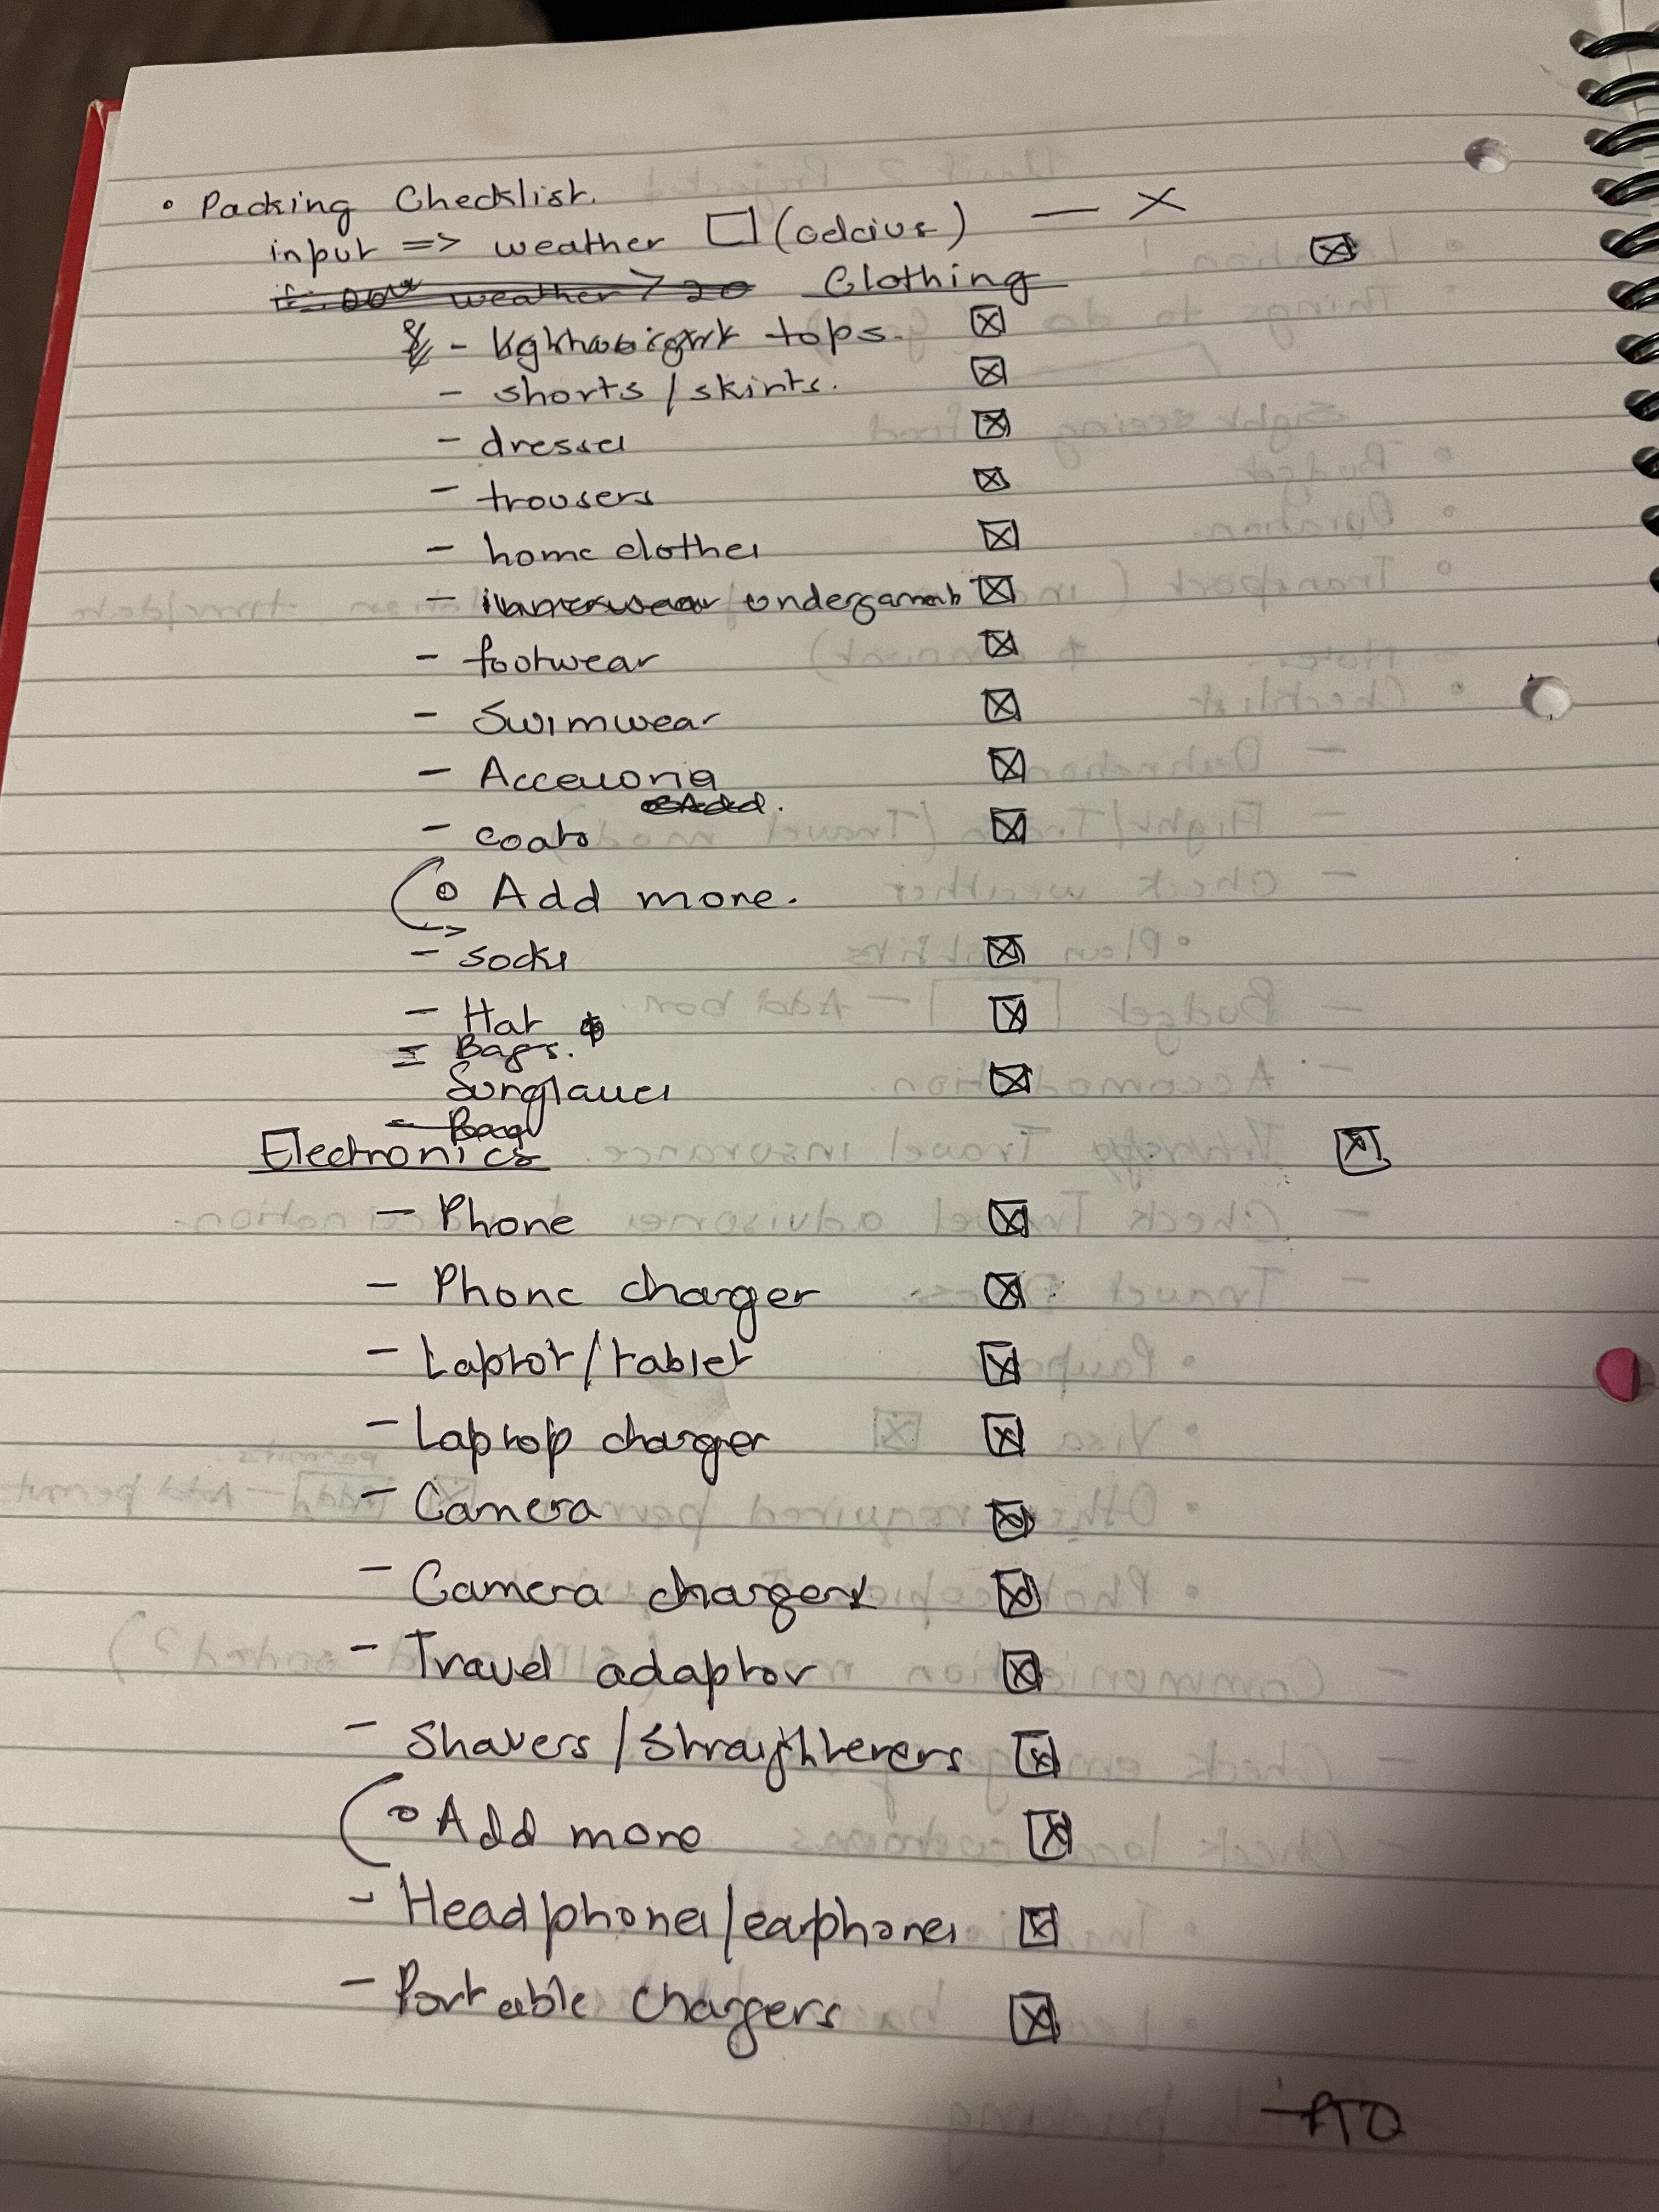 • Packing Checklist.
input => weather □ (celcius) — X
weather > 20 Clothing ☒
- tops. ☒
- shorts / skirts. ☒
- dresses ☒
- trousers ☒
- home clothes ☒
- innerwear undergarments ☒
- footwear ☒
- Swimwear ☒
- Accessories ☒
Add.
- coats ☒
o Add more.
- socks ☒
- Hat ☒
- Bags.
Sunglasses ☒
- Bag
Electronics ☒
- Phone ☒
- Phone charger ☒
- Laptop/tablet ☒
- Laptop charger ☒
- Camera ☒
- Camera charger ☒
- Travel adaptor ☒
- Shavers / Straighteners ☒
o Add more ☒
- Headphones/earphones ☒
- Portable chargers ☒
PTO